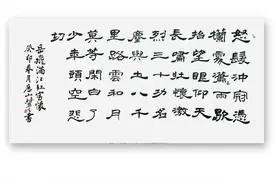 怒髮冲冠憑
欄瀟瀟雨歇
抬望眼仰天
長嘯壯懷激
烈三十功名
塵與土八千
里路雲和月
莫等閑白了
少年頭空悲
切
岳飛滿江紅寫懷
癸卯春月唐山書